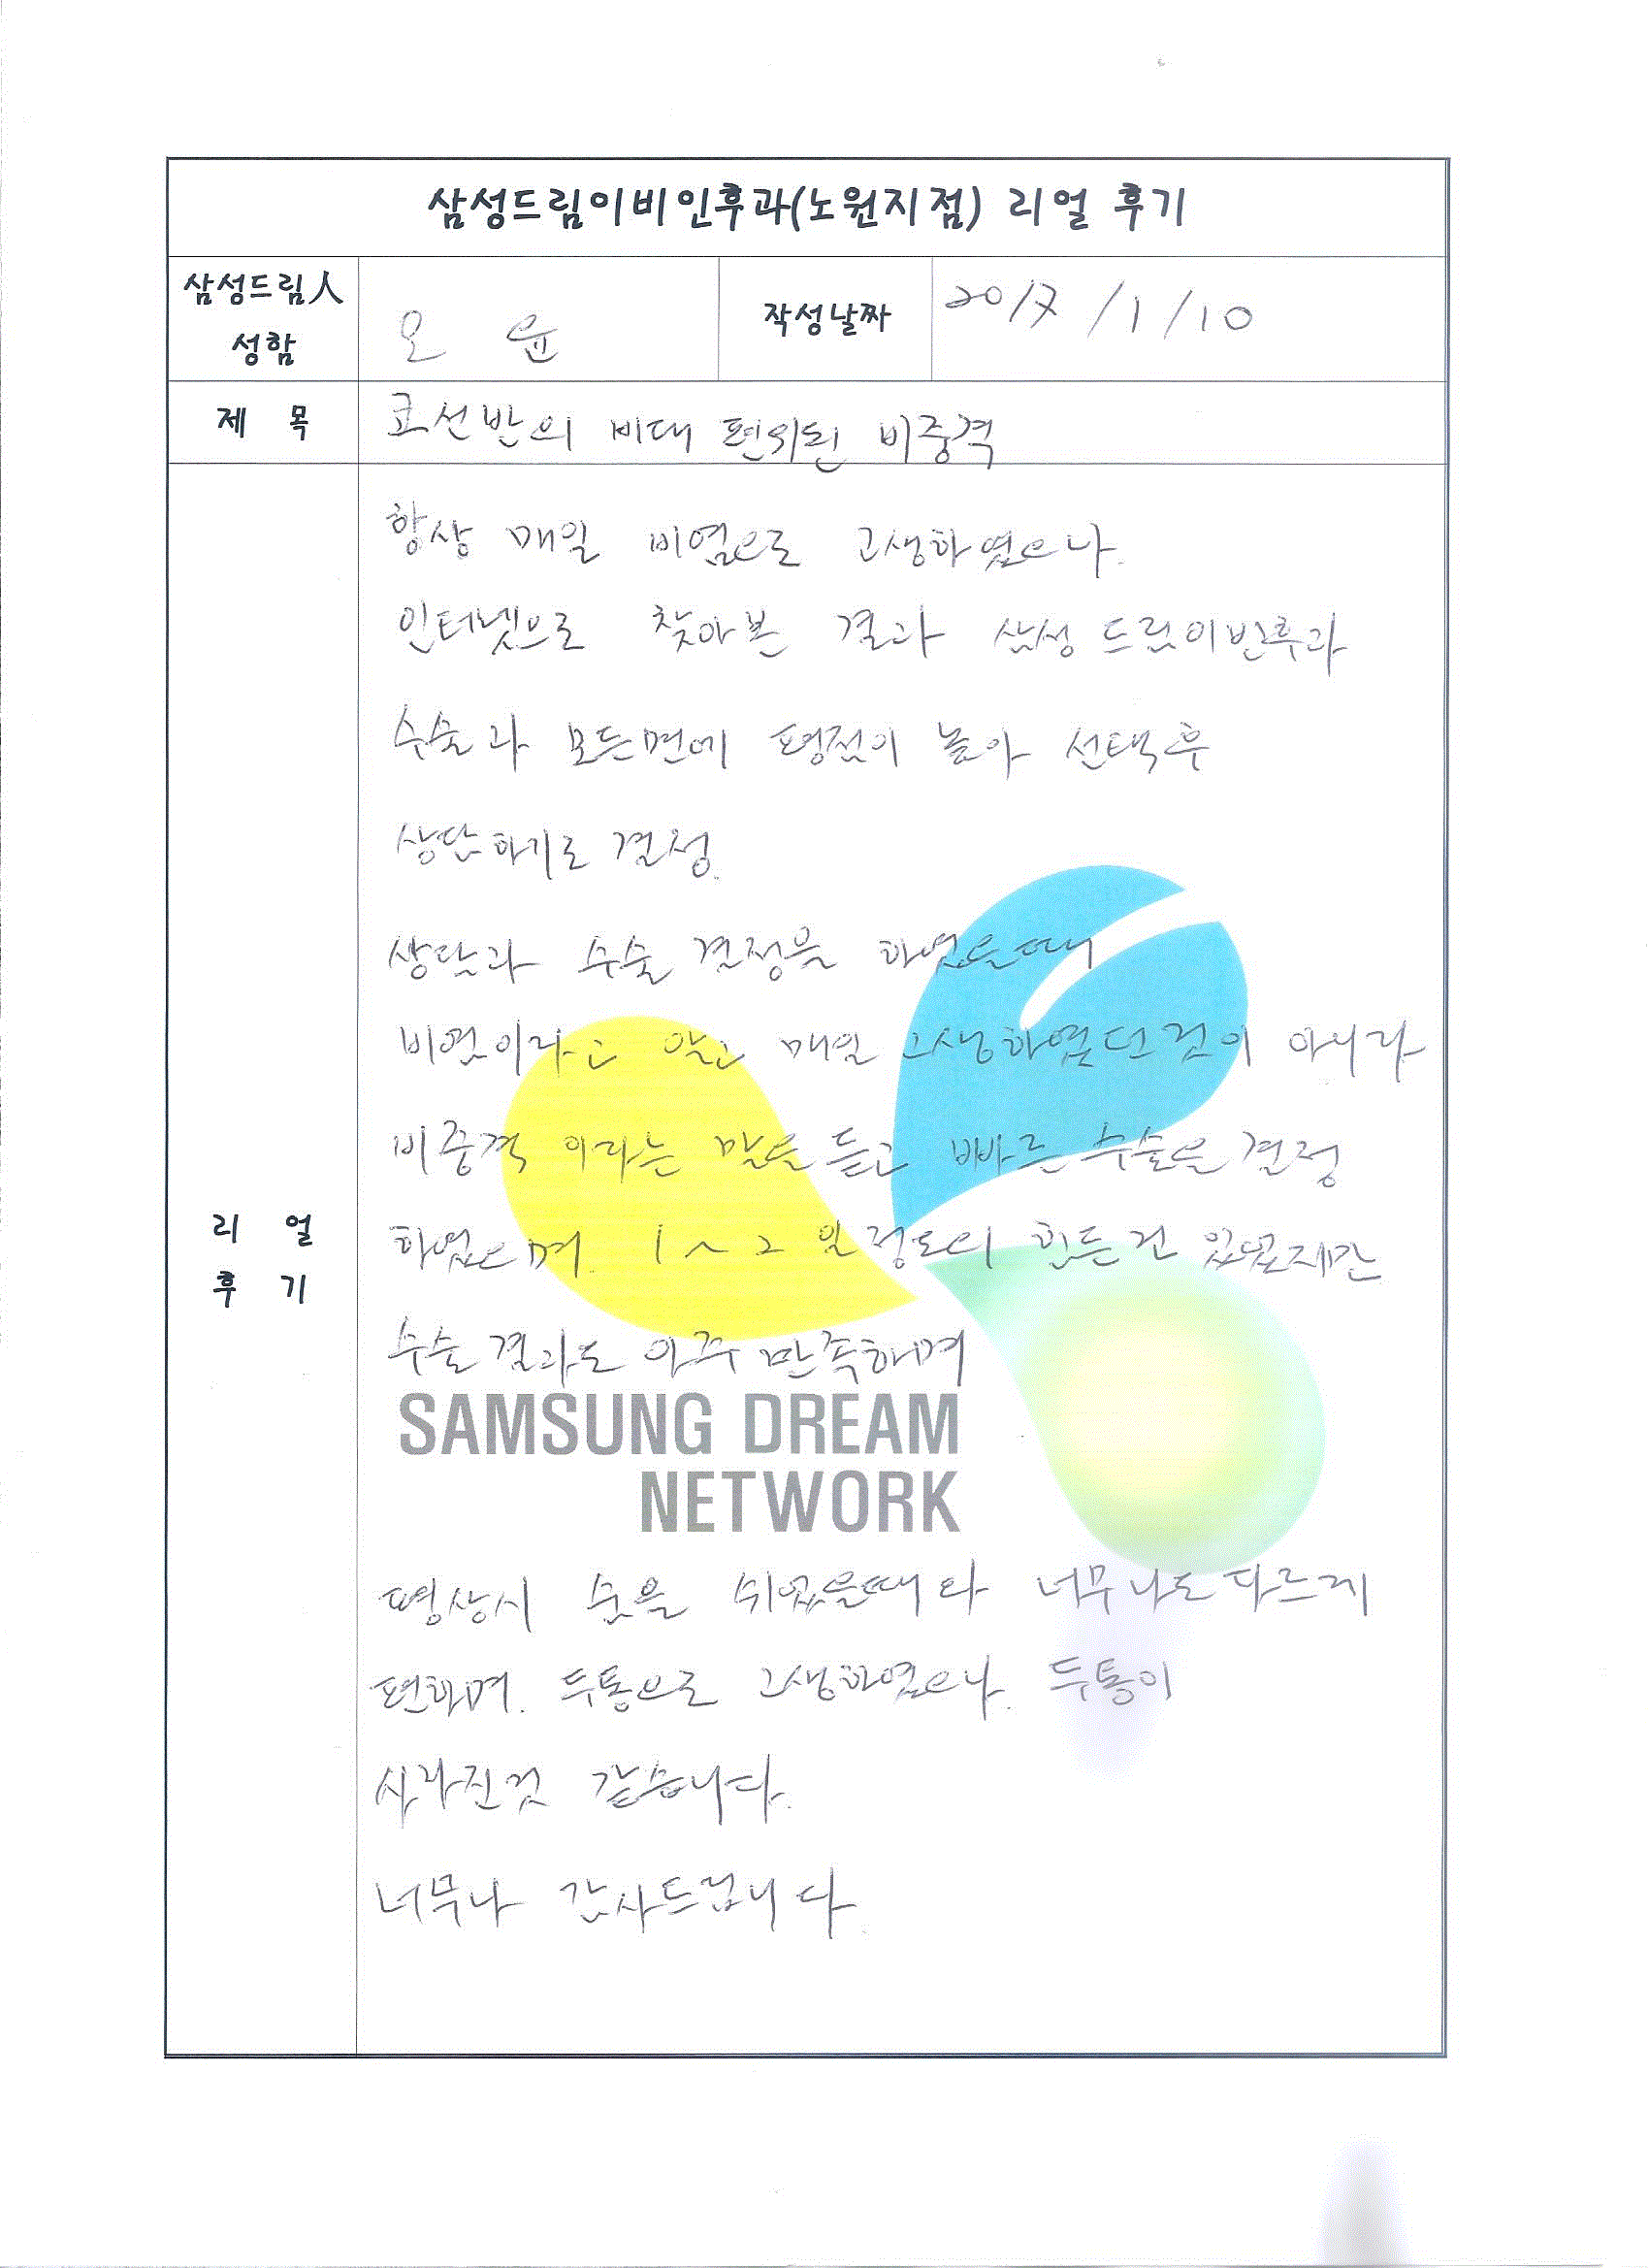 삼성드림이비인후과(노원지점) 리얼 후기
삼성드림人
성함
오 윤
작성날짜
2017/1/10
제 목
코선반의 비대 편위된 비중격
리 얼
후 기
항상 매일 비염으로 고생하였으나.
인터넷으로 찾아본 결과 삼성 드림이빈후과
수술과 모든면에 평점이 높아 선택후
상담하기로 결정.
상담과 수술 결정을 하였을때
비염이라고 알고 매일 고생하였던것이 아니라
비중격 이라는 말을 듣고 빠른 수술을 결정
하였으며. 1~2일정도의 힘든건 있었지만
수술결과도 아주 만족하며
SAMSUNG DREAM
NETWORK
평상시 숨을 쉬었을때와 너무나도 다르게
편하며. 두통으로 고생하였으나. 두통이
사라진것 같습니다.
너무나 감사드립니다.